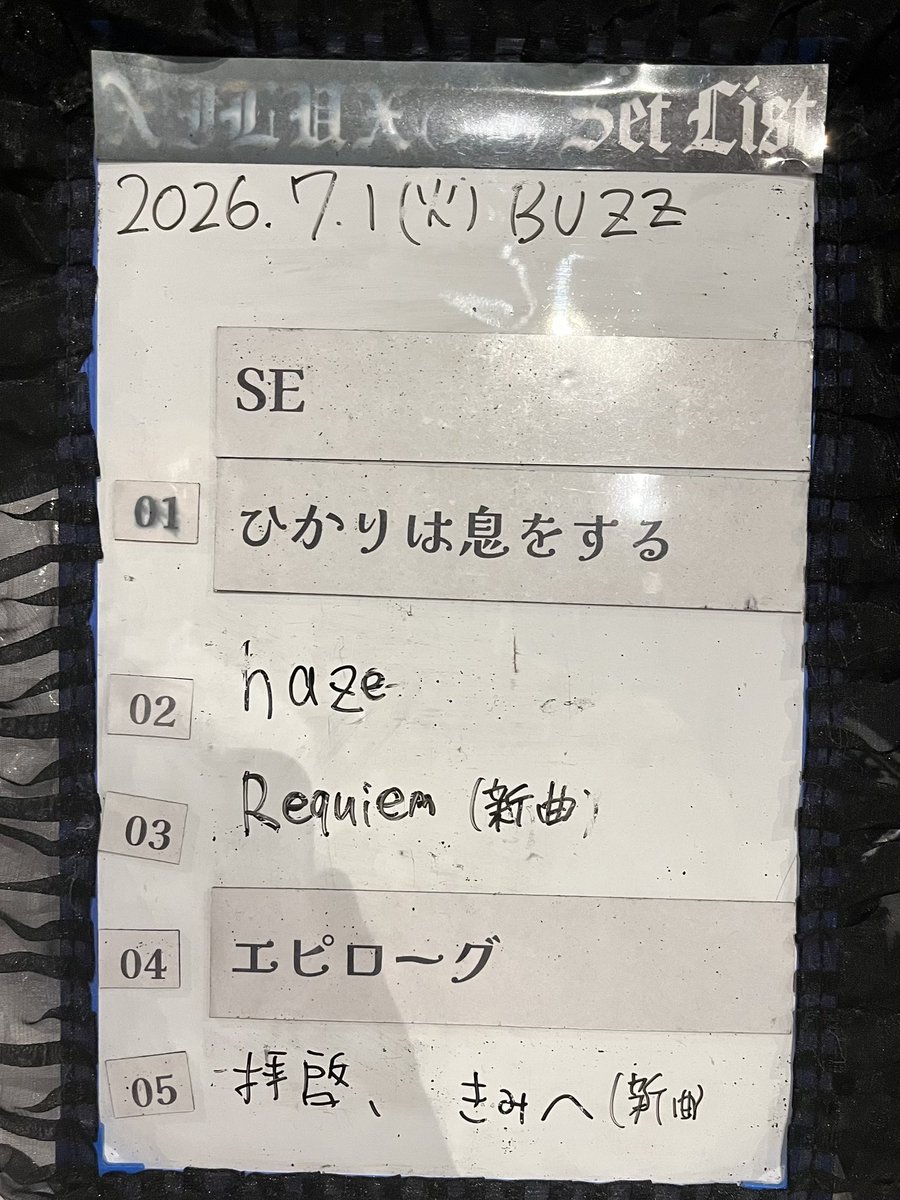 XILUX Set List
2026.7.1(火) BUZZ
SE
01 ひかりは息をする
02 haze
03 Requiem (新曲)
04 エピローグ
05 拝啓、きみへ (新曲